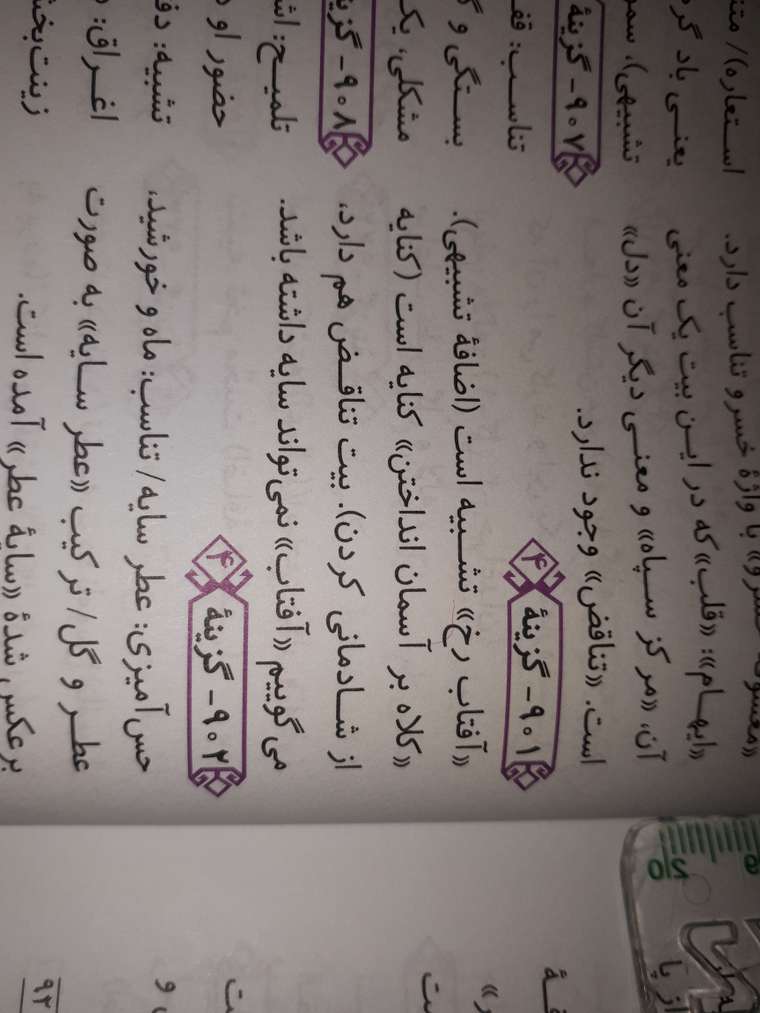 «معشوق خسرو» با واژهٔ خسرو تناسب دارد.
«ایهام»: «قلب» که در این بیت یک معنی
آن، «مرکز سپاه» و معنی دیگر آن «دل»
است. «تناقض» وجود ندارد.
۹۰۱- گزینهٔ ۴
«آفتاب رخ» تشبیه است (اضافهٔ تشبیهی).
«کلاه بر آسمان انداختن» کنایه است (کنایه
از شادمانی کردن). بیت تناقض هم دارد،
می‌گوییم «آفتاب» نمی‌تواند سایه داشته باشد.
۹۰۲- گزینهٔ ۴
حس‌آمیزی: عطر سایه/ تناسب: ماه و خورشید،
عطر و گل/ ترکیب «عطر سایه» به صورت
برعکس شدهٔ «سایهٔ عطر» آمده است.
استعاره)/
یعنی باد
تشبیهی)،
۹۰۷- گزینهٔ
تناسب:
بستگی و
مشکلی، یک
۹۰۸-
تلمیح:
حضور او
تشبیه:
اغراق:
۹۳
از پا
20